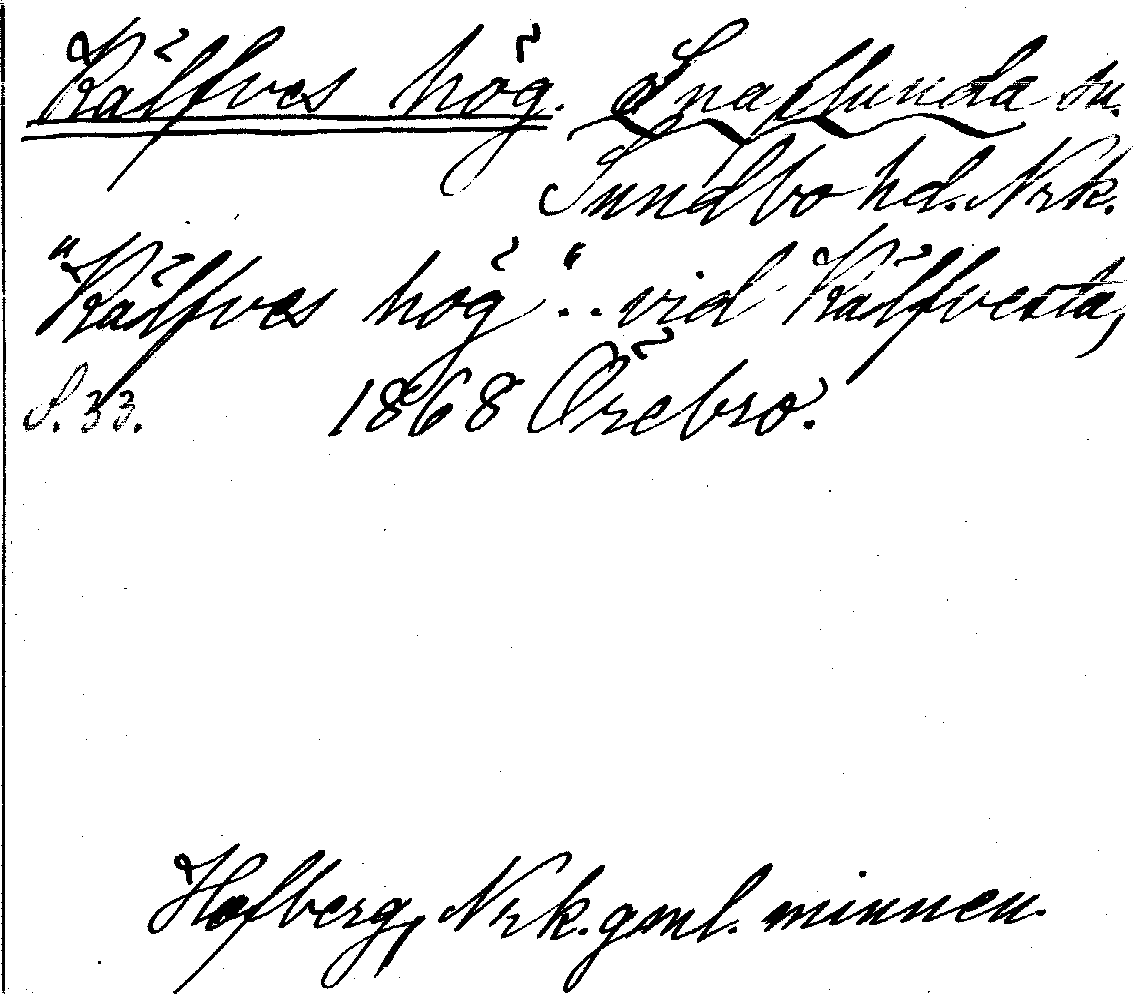 Kälfves hög. Snaflunda sn.
Sundbo hd. Nrk.
"Kälfves hög".. vid Kälfvesta,
S. 33. 1868 Örebro.
Hofberg, Nrk. gml. minnen.